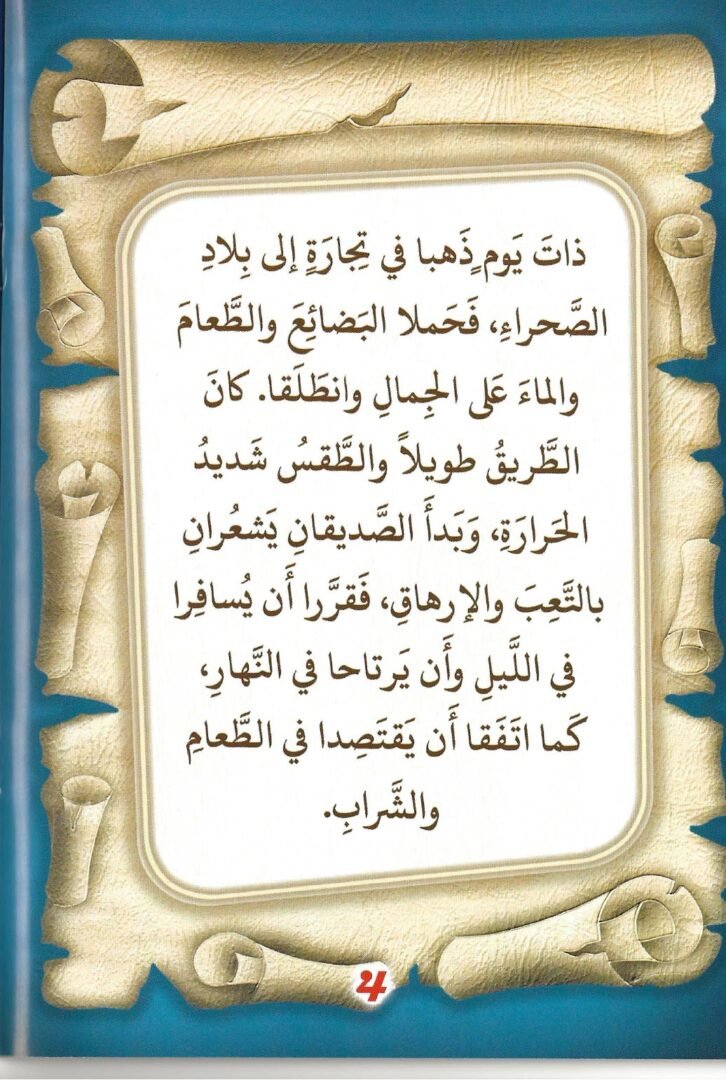 ذاتَ يَومٍ ذَهبا في تِجارَةٍ إلى بِلادِ
الصَّحراءِ، فَحَملا البَضائِعَ والطَّعامَ
والماءَ عَلى الجِمالِ وانطَلَقا. كانَ
الطَّريقُ طويلاً والطَّقسُ شَديدُ
الحَرارَةِ، وَبَدأَ الصَّديقانِ يَشعُرانِ
بالتَّعِبَ والإرهاقِ، فَقرَّرا أَن يُسافِرا
في اللَّيلِ وأَن يَرتاحا في النَّهارِ،
كَما اتَفَقا أَن يَقتَصِدا في الطَّعامِ
والشَّرابِ.
4